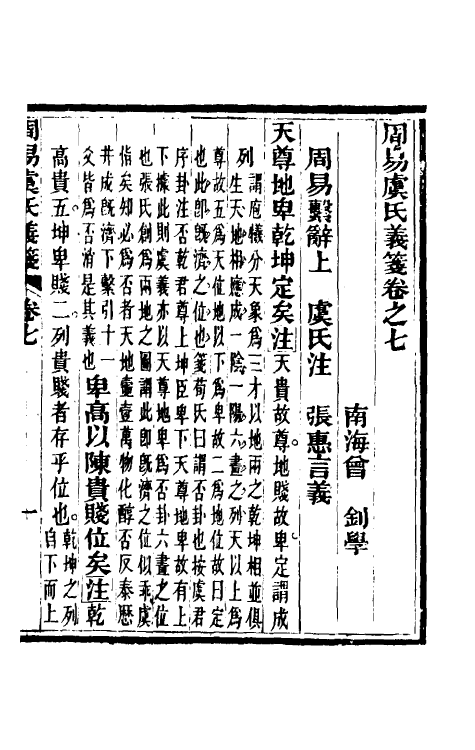 周易虞氏義箋卷之七
南海曾 釗學
周易繫辭上 虞氏注 張惠言義
天尊地卑乾坤定矣注天貴故尊地賤故卑定謂成
列謂庖犧分天象為三才以地兩之乾坤相並俱
生天地相應成一陰一陽六畫之列天以上為
尊故五為天位地以下為卑故二為地位故曰定
也此即既濟之位也箋荀氏曰謂否卦也按虞君
序卦注否乾君尊上坤臣卑下天尊地卑故有上
下據此則虞義亦以天尊地卑為否卦六畫之位
也張氏創為兩地之圖謂此即既濟之位似乖虞
恉矣知必為否者天地壹壹萬物化醇否反泰歷
井成既濟下繫引十一
爻皆為否消是其義也
卑高以陳貴賤位矣注乾
高貴五坤卑賤二列貴賤者存乎位也
乾坤之列
自下而上
周易虞氏義箋 卷七 一